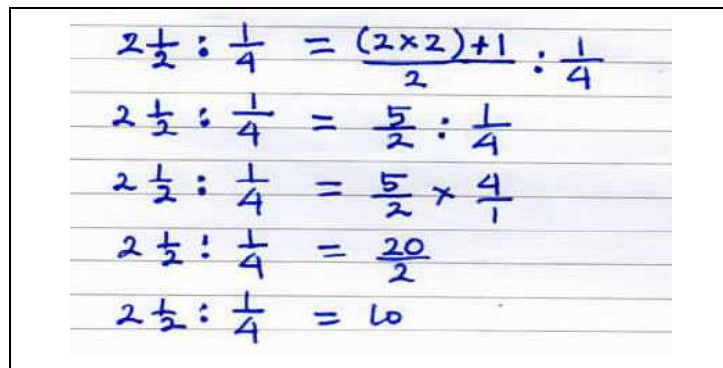 2 1/2 : 1/4 = (2×2)+1/2 : 1/4
2 1/2 : 1/4 = 5/2 : 1/4
2 1/2 : 1/4 = 5/2 × 4/1
2 1/2 : 1/4 = 20/2
2 1/2 : 1/4 = 10